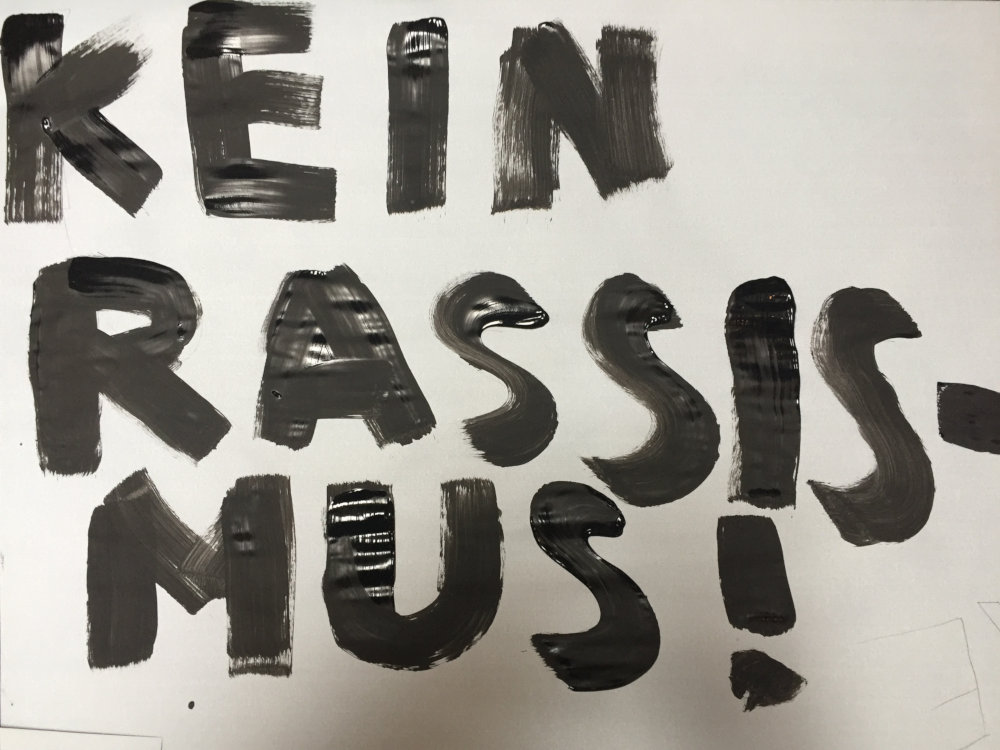 KEIN
RASSIS-
MUS!